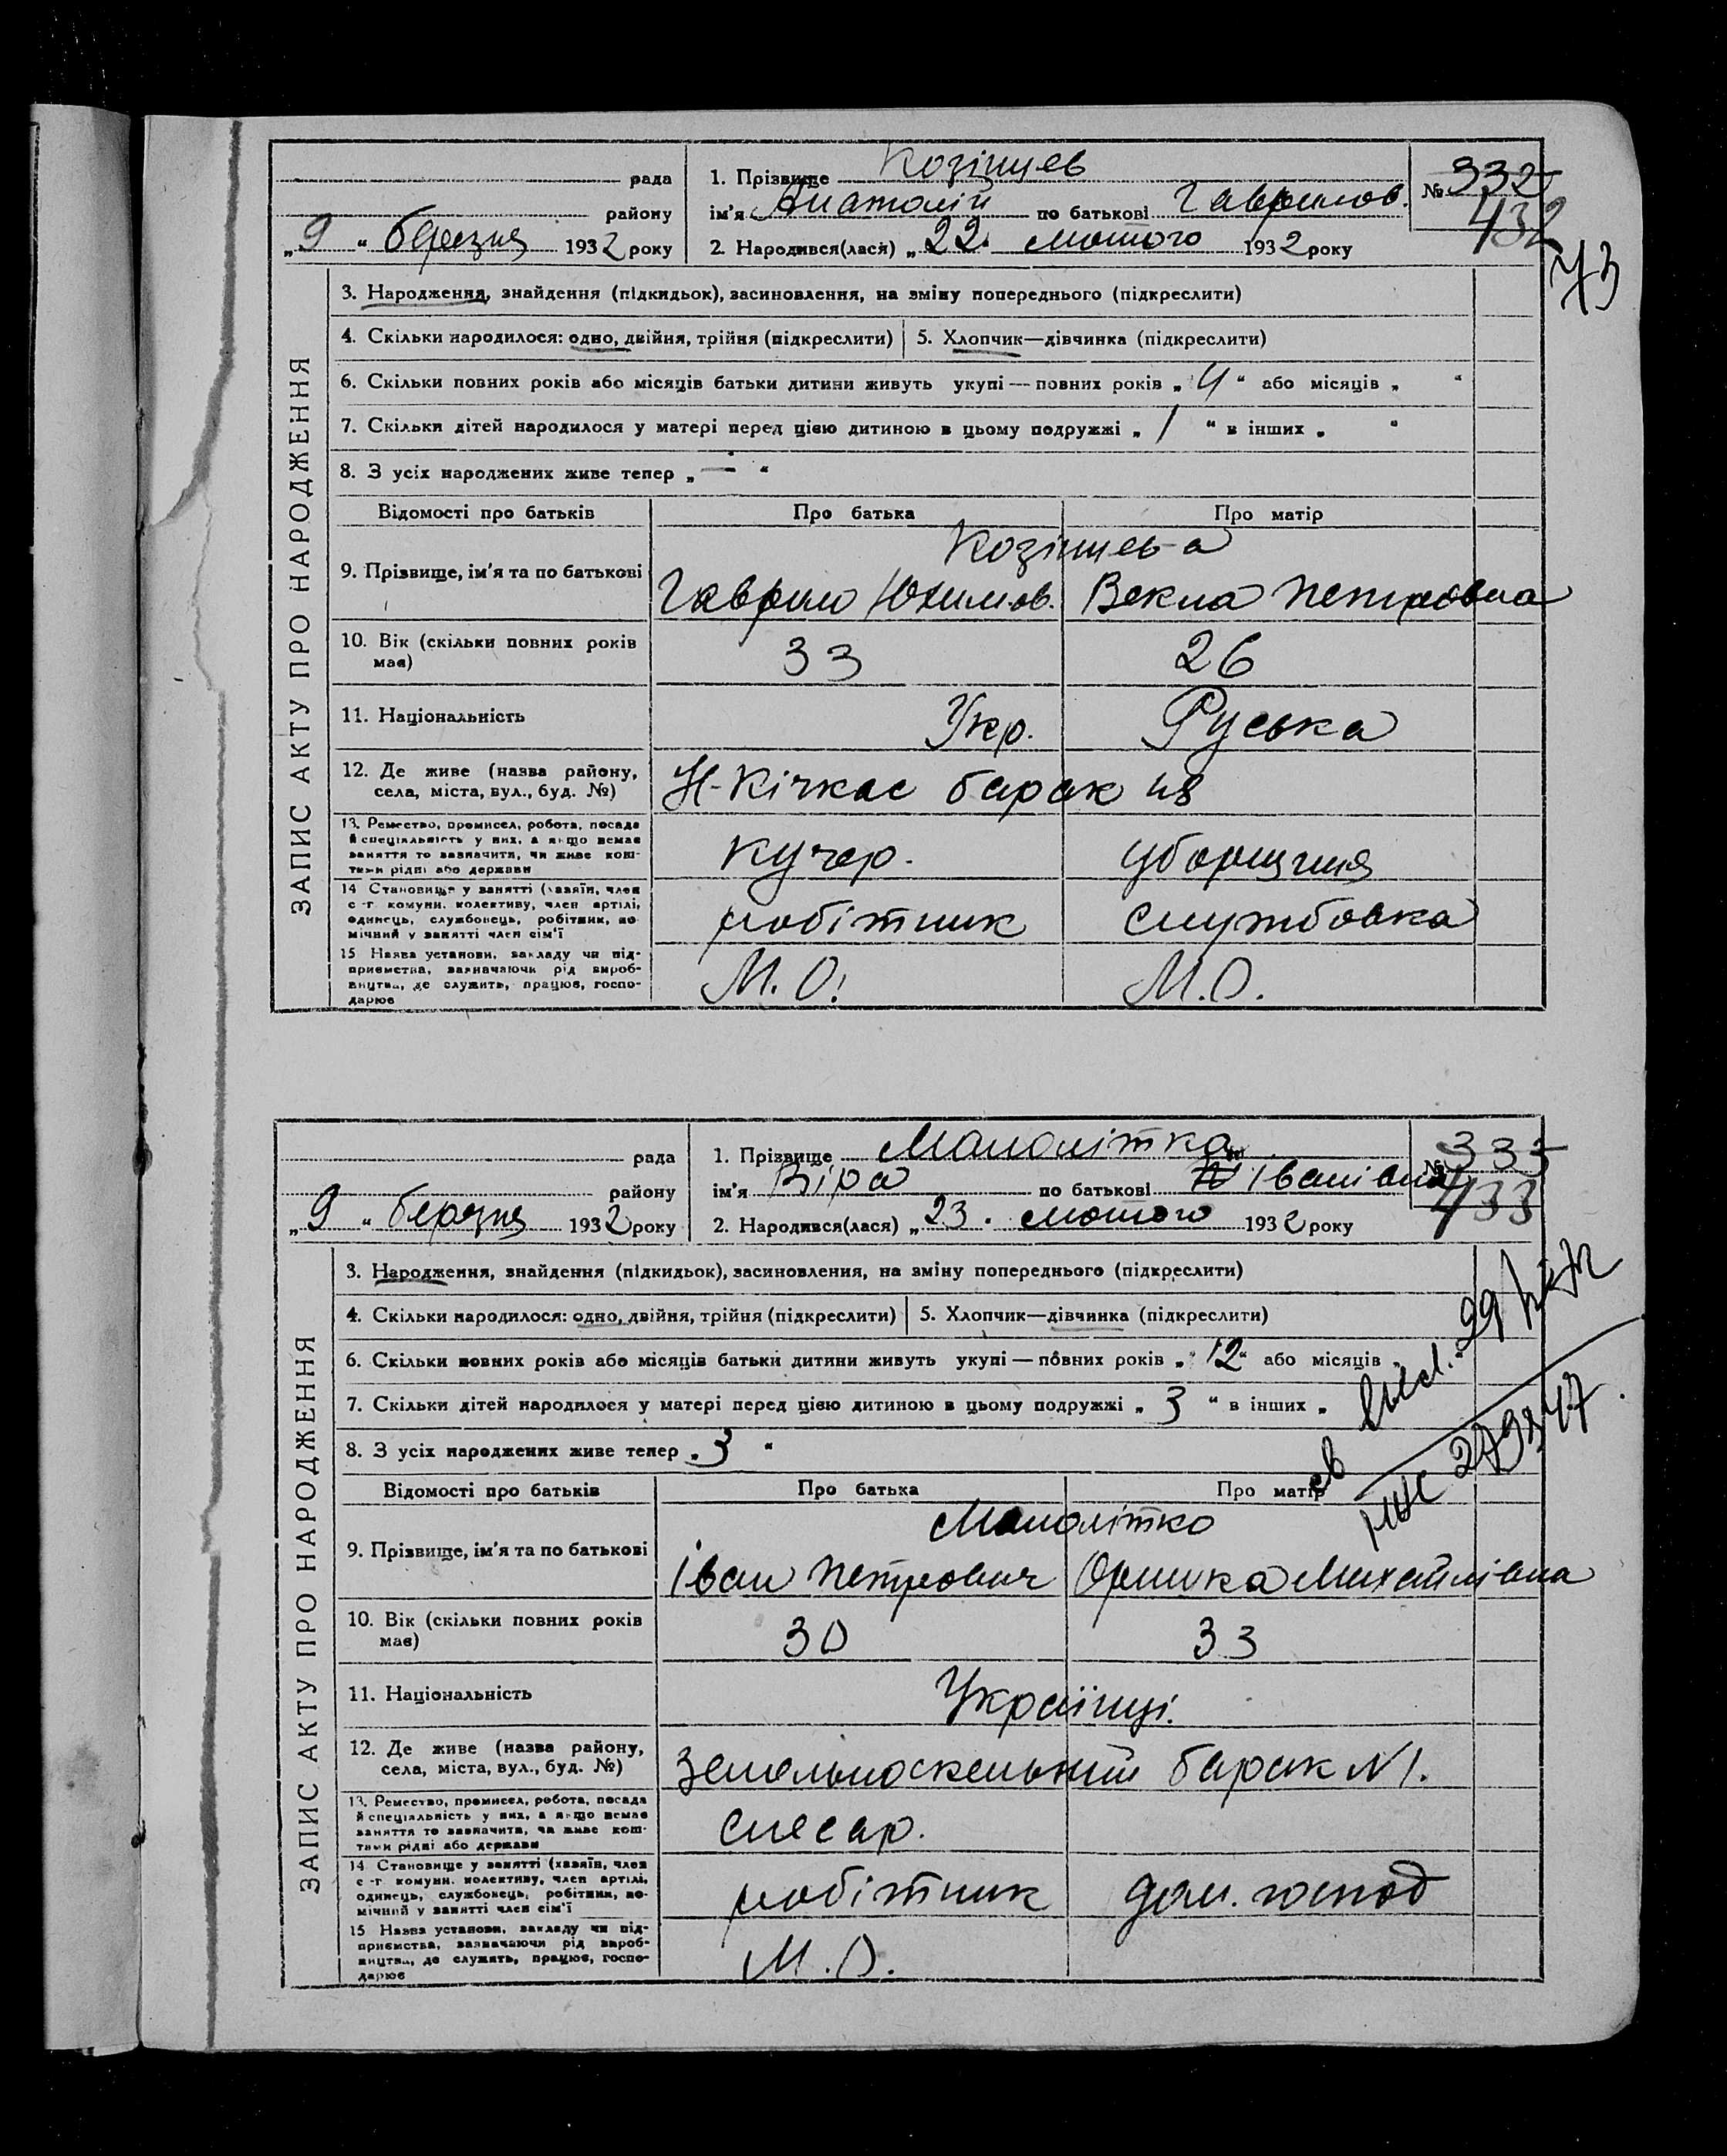 рада
району
„9“ березня 1932 року
1. Прізвище Козінцев
ім'я Анатолій по батькові Гаврилов.
2. Народився(лася) „22. лютого 1932 року
№ 332
432
73
ЗАПИС АКТУ ПРО НАРОДЖЕННЯ
3. Народження, знайдення (підкидьок), засиновлення, на зміну попереднього (підкреслити)
4. Скільки народилося: одно, двійня, трійня (підкреслити)
5. Хлопчик—дівчинка (підкреслити)
6. Скільки повних років або місяців батьки дитини живуть укупі — повних років „4“ або місяців „ “
7. Скільки дітей народилося у матері перед цією дитиною в цьому подружжі „1“ в інших „ “
8. З усіх народжених живе тепер „—“
Відомості про батьків
Про батька
Про матір
9. Прізвище, ім'я та по батькові
Козінцев-а
Гаврило Юхимов.
Векла Петровна
10. Вік (скільки повних років має)
33
26
11. Національність
Укр.
Руська
12. Де живе (назва району, села, міста, вул., буд. №)
Н-Кічкас барак 48
13. Ремество, промисел, робота, посада й спеціяльність у них, а якщо немає заняття то зазначити, чи живе коштами рідні або держави
кучер.
уборщиця
14 Становище у занятті (хазяїн, член с-г комуни, колективу, член артілі, одинець, службовець, робітник, помічний у занятті член сім'ї
робітник
службовка
15 Назва установи, закладу чи підприємства, зазначаючи рід виробництва, де служить, працює, господарює
М.О.
М.О.
рада
району
„9“ березня 1932 року
1. Прізвище Маполітка
ім'я Віра по батькові Іванівна
2. Народився(лася) „23. лютого 1932 року
№ 333
433
ЗАПИС АКТУ ПРО НАРОДЖЕННЯ
3. Народження, знайдення (підкидьок), засиновлення, на зміну попереднього (підкреслити)
4. Скільки народилося: одно, двійня, трійня (підкреслити)
5. Хлопчик—дівчинка (підкреслити)
6. Скільки повних років або місяців батьки дитини живуть укупі — повних років „12“ або місяців
7. Скільки дітей народилося у матері перед цією дитиною в цьому подружжі „3“ в інших „
8. З усіх народжених живе тепер „3“
Відомості про батьків
Про батька
Про матір
9. Прізвище, ім'я та по батькові
Маполітко
Іван Петрович
Оришка Михайлівна
10. Вік (скільки повних років має)
30
33
11. Національність
Українці.
12. Де живе (назва району, села, міста, вул., буд. №)
барак N 1.
13. Ремество, промисел, робота, посада й спеціяльність у них, а якщо немає заняття то зазначити, чи живе коштами рідні або держави
слесар.
14 Становище у занятті (хазяїн, член с-г комуни, колективу, член артілі, одинець, службовець, робітник, помічний у занятті член сім'ї
робітник
дом. господ
15 Назва установи, закладу чи підприємства, зазначаючи рід виробництва, де служить, працює, господарює
М.О.